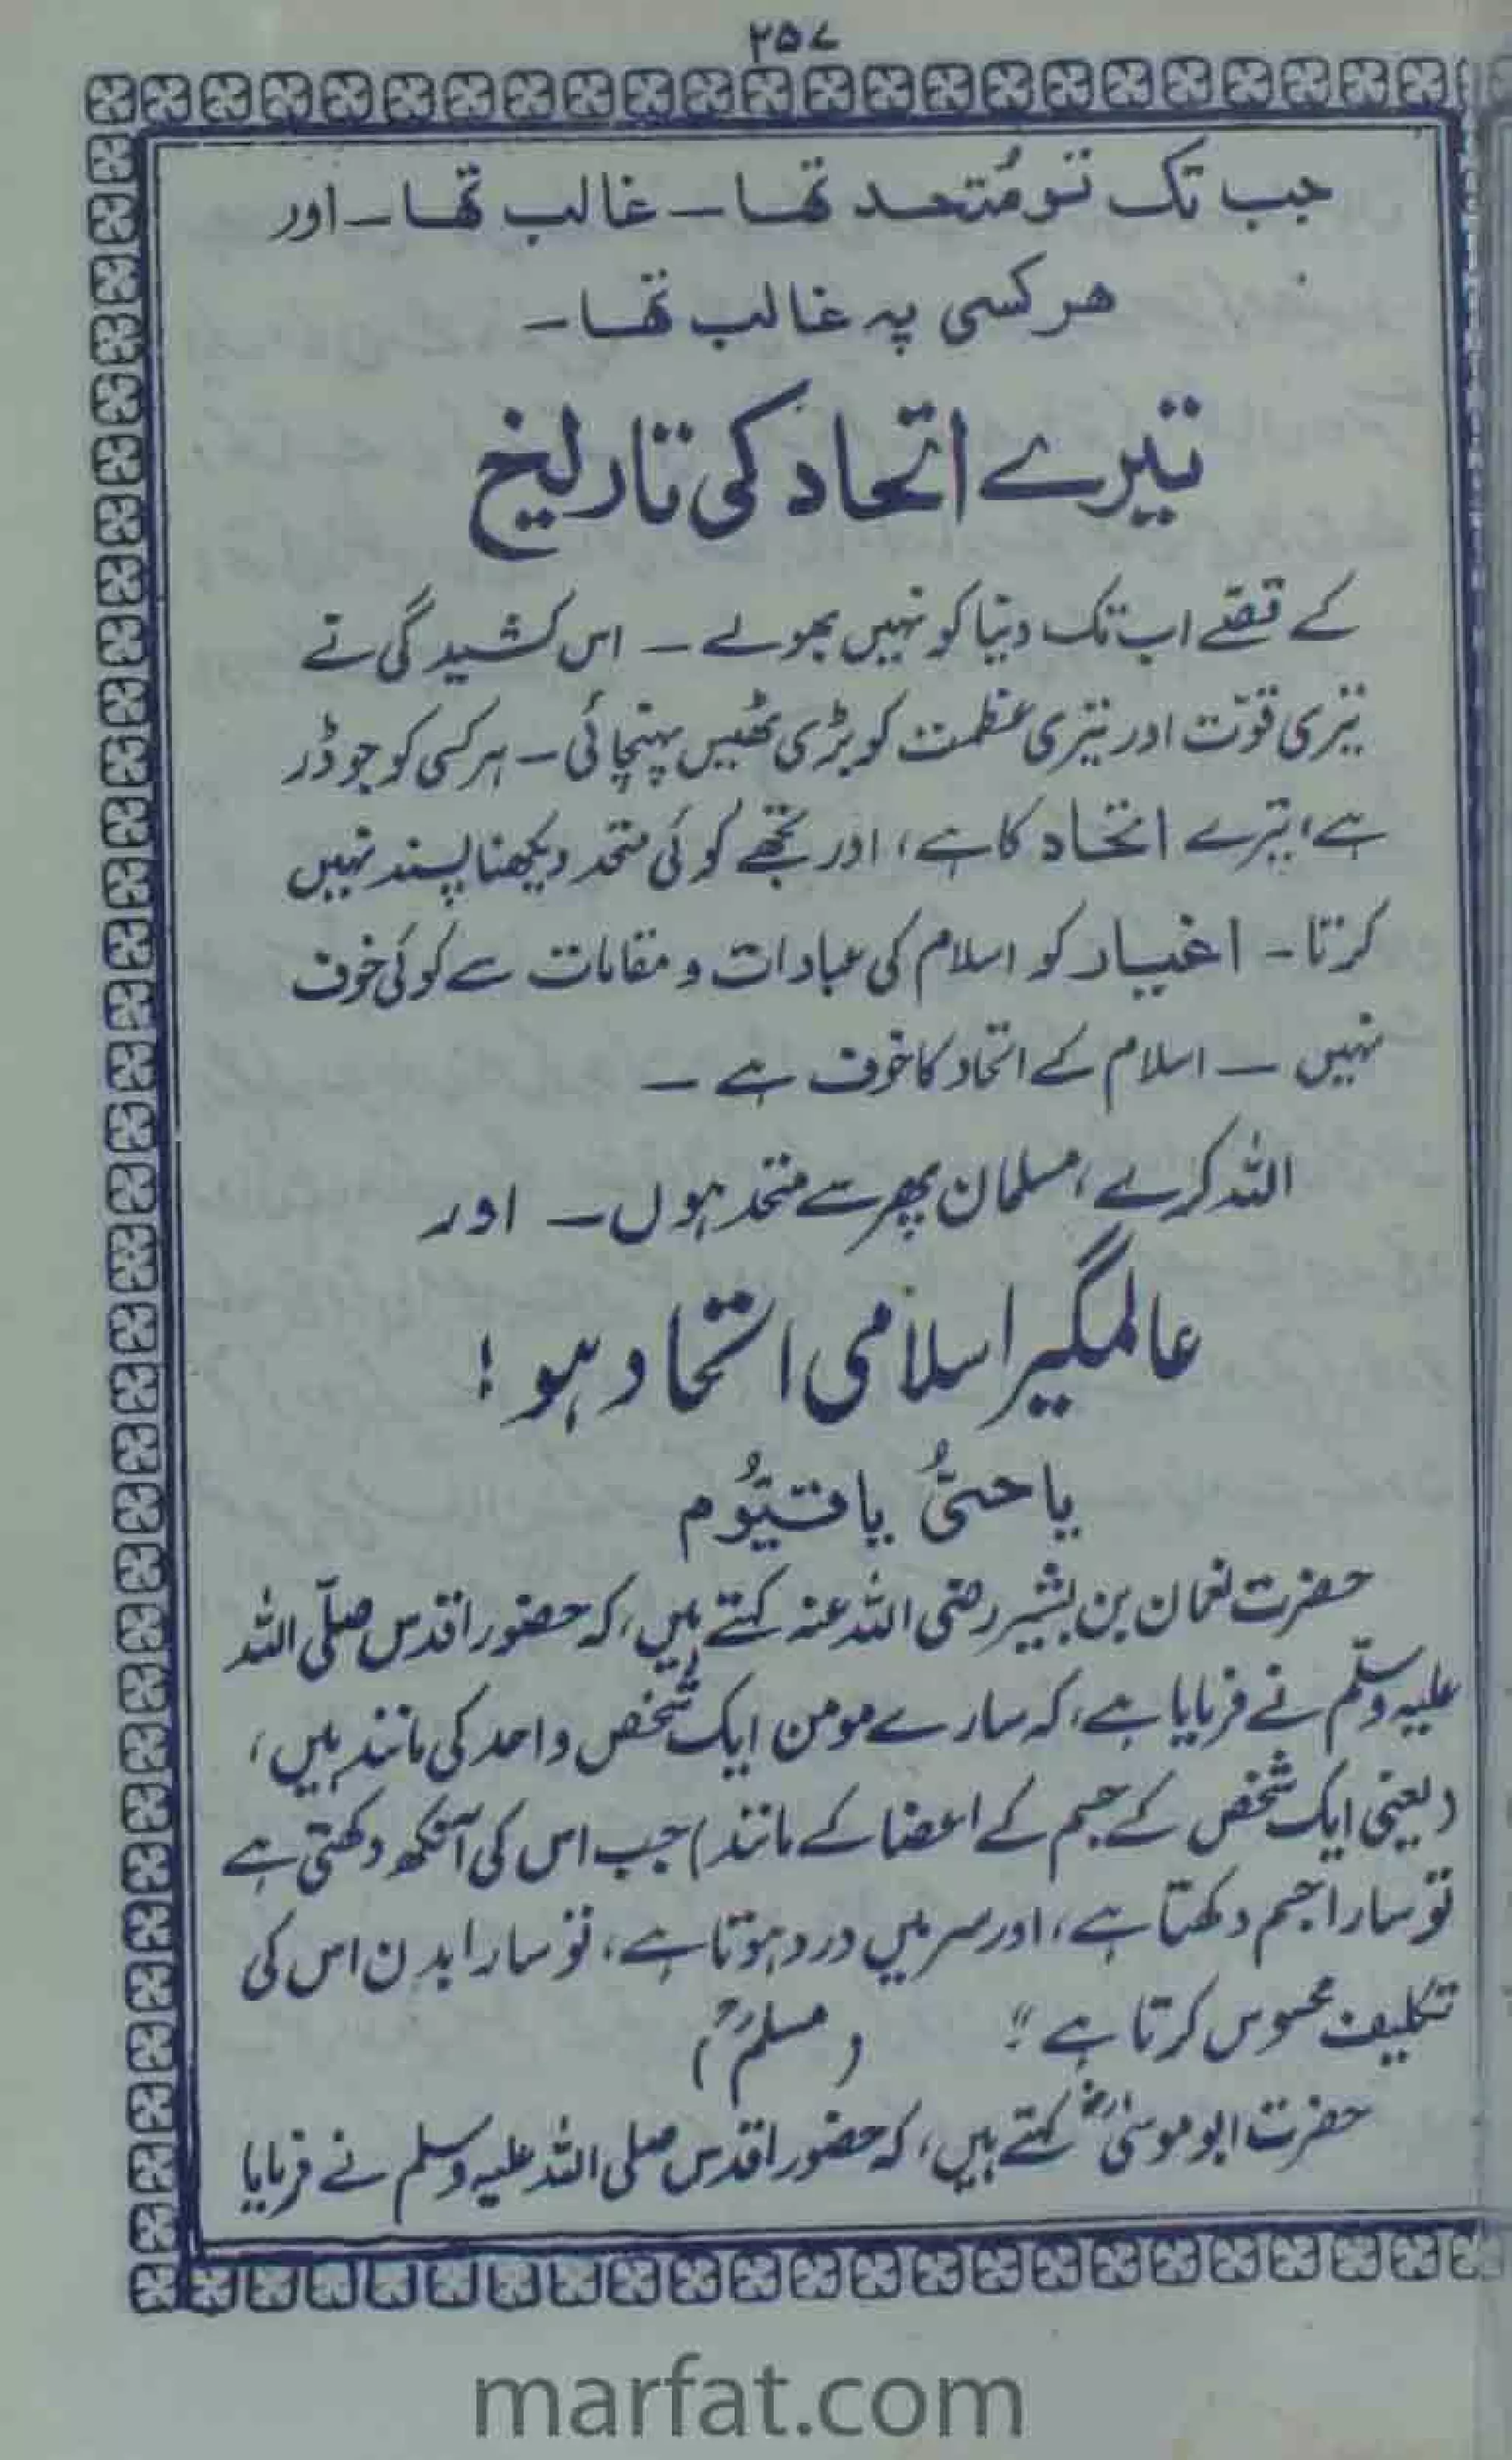 ۲۵۷
جب تک تو مُتحد تھا۔ غالب تھا۔ اور
ھر کسی پہ غالب تھا۔
تیرے اتحاد کی تاریخ
کے قصّے اب تک دنیا کو نہیں بھولے ۔ اس کشیدگی نے
تیری قوّت اور تیری عظمت کو بڑی ٹھیس پہنچائی ۔ ہر کسی کو جو ڈر
ہے، تیرے اتحاد کا ہے، اور تجھے کوئی متحد دیکھنا پسند نہیں
کرتا ۔ اغیار کو اسلام کی عبادات و مقامات سے کوئی خوف
نہیں ۔ اسلام کے اتحاد کا خوف ہے ۔
اللہ کرے، مسلمان پھر سے متحد ہوں ۔ اور
عالمگیر اسلامی اتحاد ہو !
یا حیُّ یا قیُّوم
حضرت نعمان بن بشیر رضی اللہ عنہ کہتے ہیں، کہ حضور اقدس صلّی اللہ
علیہ وسلّم نے فرمایا ہے، کہ سارے مومن ایک شخص واحد کی مانند ہیں،
(یعنی ایک شخص کے جسم کے اعضا کے مانند) جب اس کی آنکھ دکھتی ہے
تو سارا جسم دکھتا ہے، اور سر میں درد ہوتا ہے، تو سارا بدن اس کی
تکلیف محسوس کرتا ہے ؛" (مسلمؒ)
حضرت ابو موسٰیؓ کہتے ہیں، کہ حضور اقدس صلی اللہ علیہ وسلم نے فرمایا
marfat.com